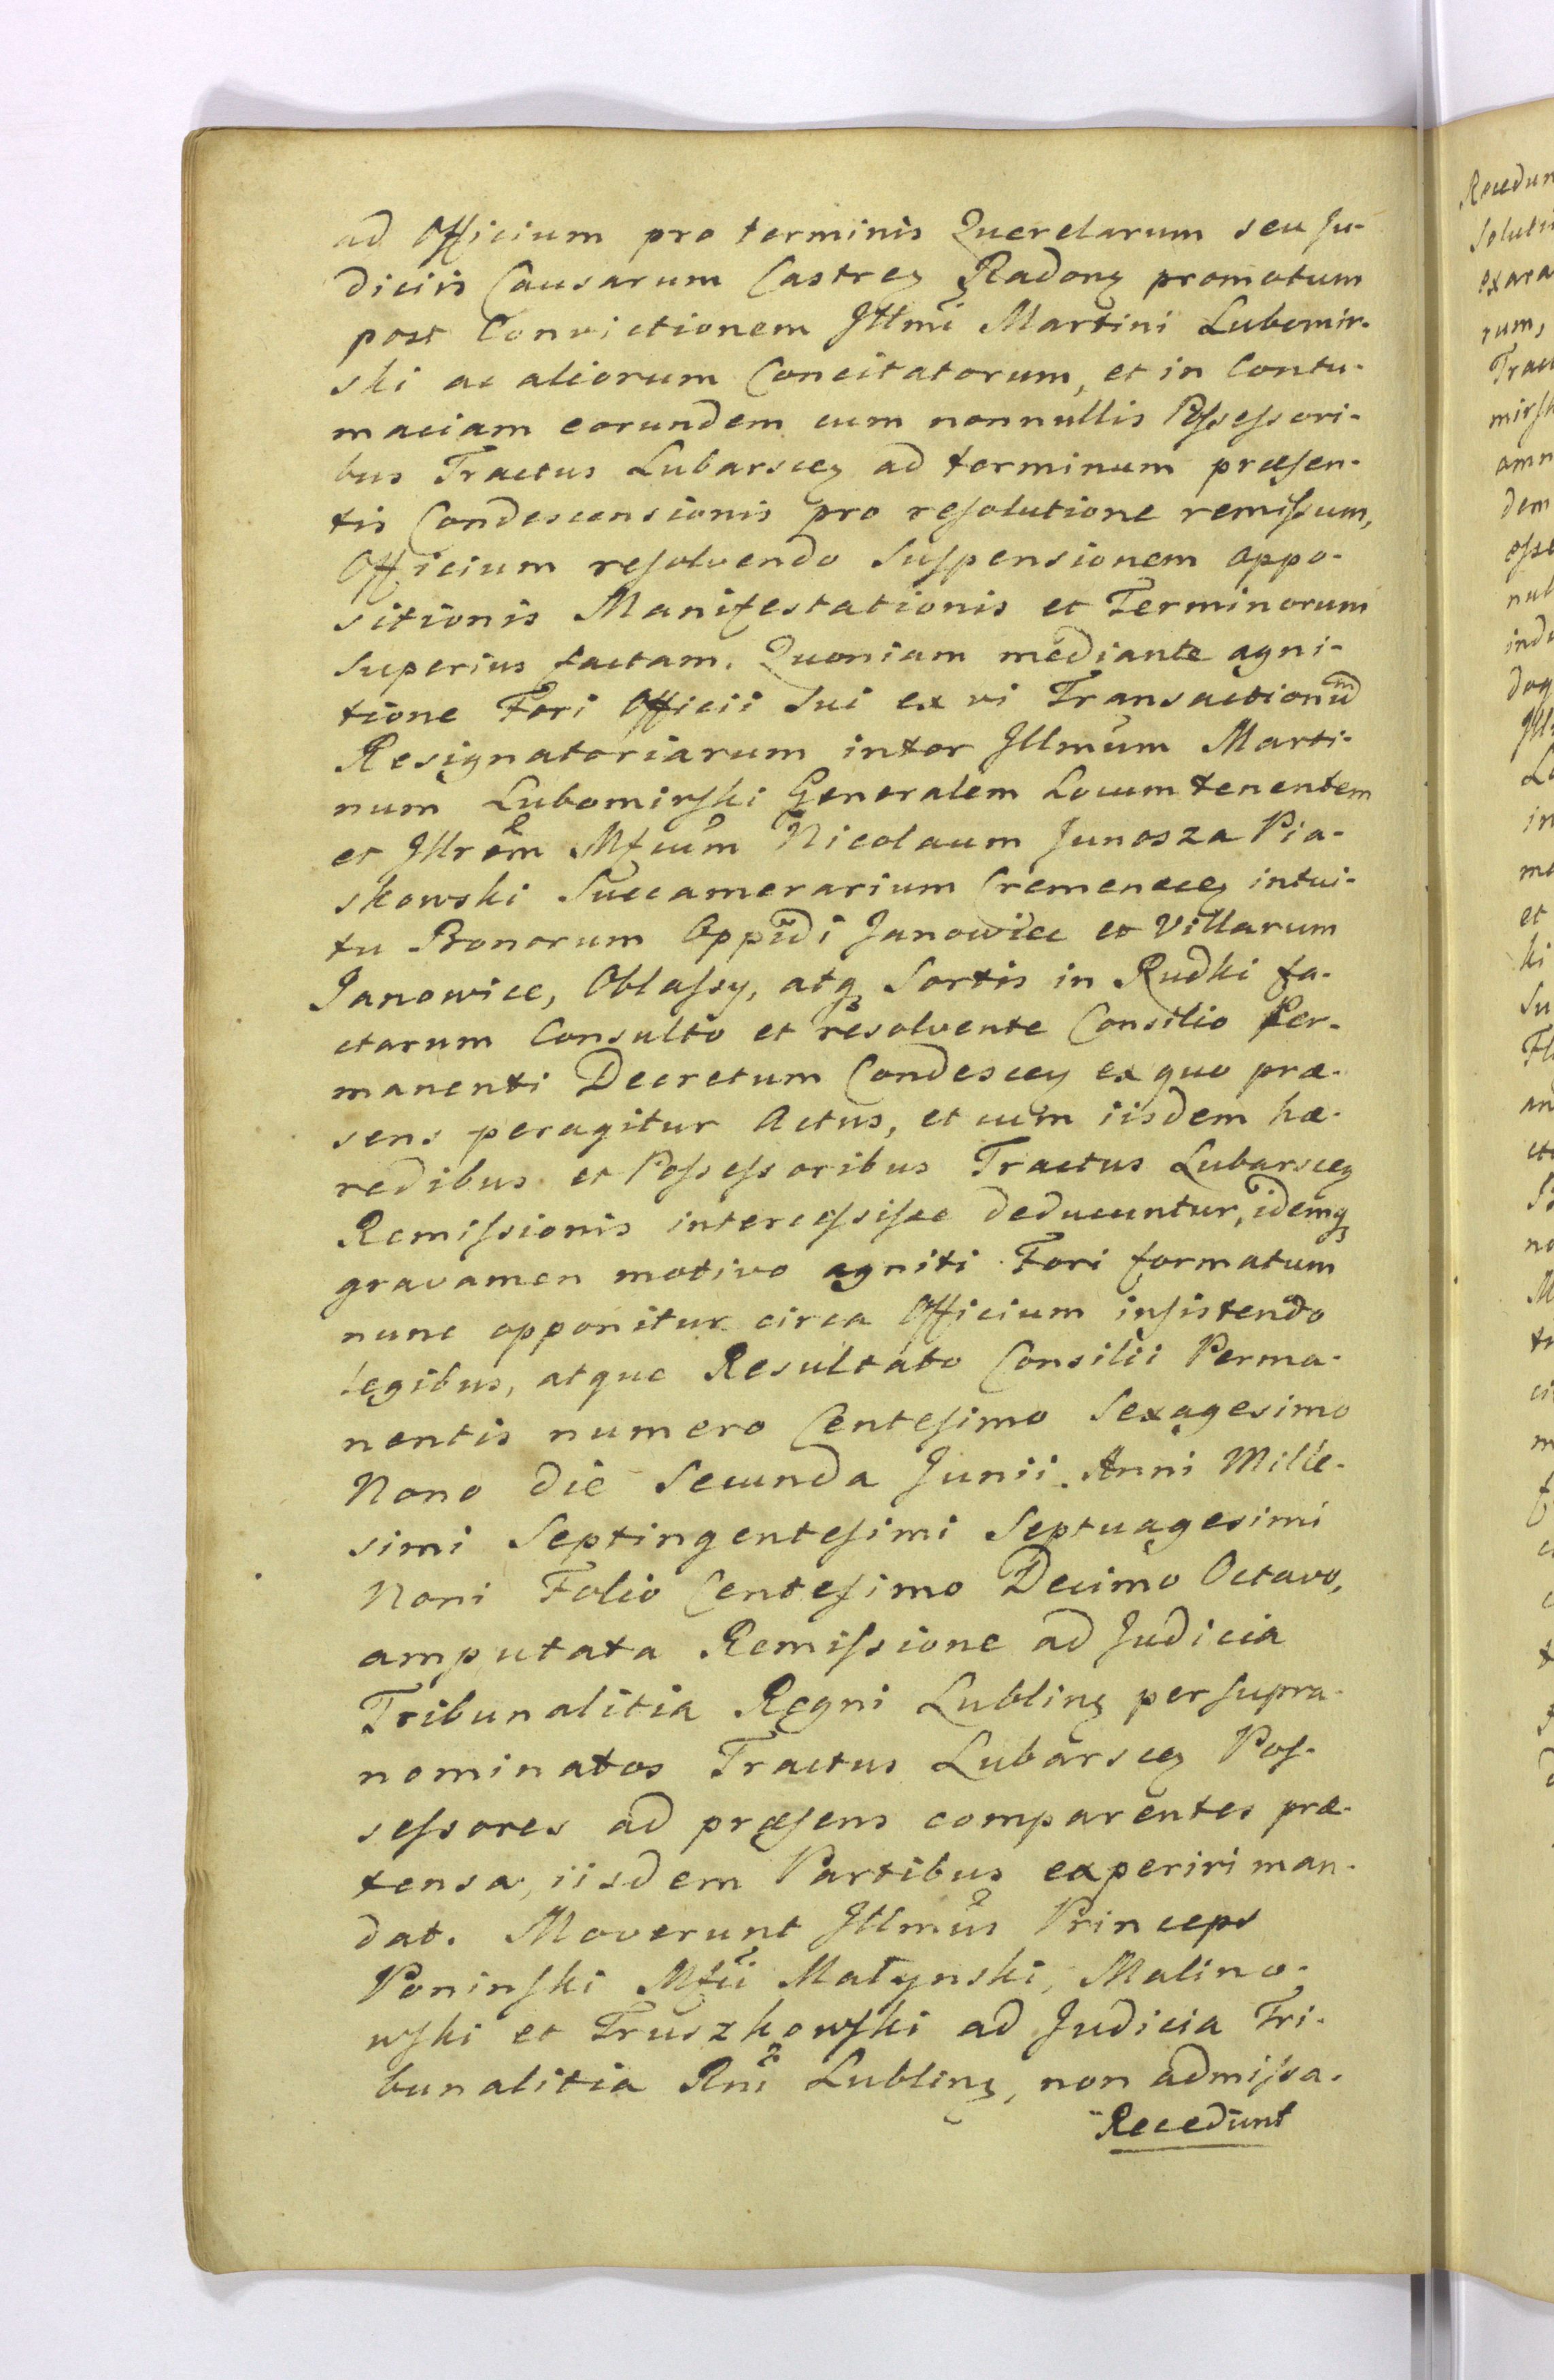 ad Officium pro terminis Querelarum seu Ju-
diciis Causarum Castreꝫ Radonꝫ promotum
post Convictionem Jllmi Martini Lubomir-
ski ac aliorum Concitatorum, et in Contu-
maciam eorundem cum nonnullis Poſseſsori-
bus Tractus Lubarsceꝫ ad terminum præſen-
tis Condescensionis pro reſolutione remiſsum,
Officium reſolvendo Suſpensionem Oppo-
sitionis Manifestationis et Terminorum
Superius factam. Quoniam mediante agni-
tione Fori Officii Sui ex vi Transactionum
Resignatoriarum inter Jllmum Marti-
num Lubomirſki Generalem Locum tenentem
et Jllrem Mfcum Nicolaum Junosza Pia-
skowski Succamerarium Cremeneceꝫ intui-
tu Bonorum Oppidi Janowice et Villarum
Janowice, Oblaſsy, atqꝫ Sortis in Rudki fa-
ctarum Consulto et resolvente Consilio Per-
manenti Decretum Condesceꝫ ex quo præ-
sens peragitur Actus, et cum iisdem hæ-
redibus et Poſseſsoribus Tractus Lubarsceꝫ
Remiſsionis interceſsiſse deducuntur, idemqꝫ
gravamen motivo agniti Fori formatum
nunc opponitur circa Officium inſistendo
legibus, atque Resultato Consilii Perma-
nentis numero Centeſimo Sexagesimo
Nono die Secunda Junii Anni Mille-
simi Septingenteſimi Septuagesimi
Noni Folio Centeſimo Decimo Octavo,
amputata Remiſsione ad Judicia
Tribunalitia Regni Lublinꝫ per Supra-
nominatos Tractus Lubarsceꝫ Poſ-
seſsores ad præſens comparentes præ-
tensa, iisdem Partibus experiri man-
dat. Moverunt Jllmus Princeps
Poninſki Mfci Małynski, Malino-
wſki et Truszkowſki ad Judicia Tri-
bunalitia Rni Lublinꝫ, non admiſsa.
Recedunt
Recedun
Soluti
exara
rum,
Tract
mirſk
amn
dem
et
ki
Su